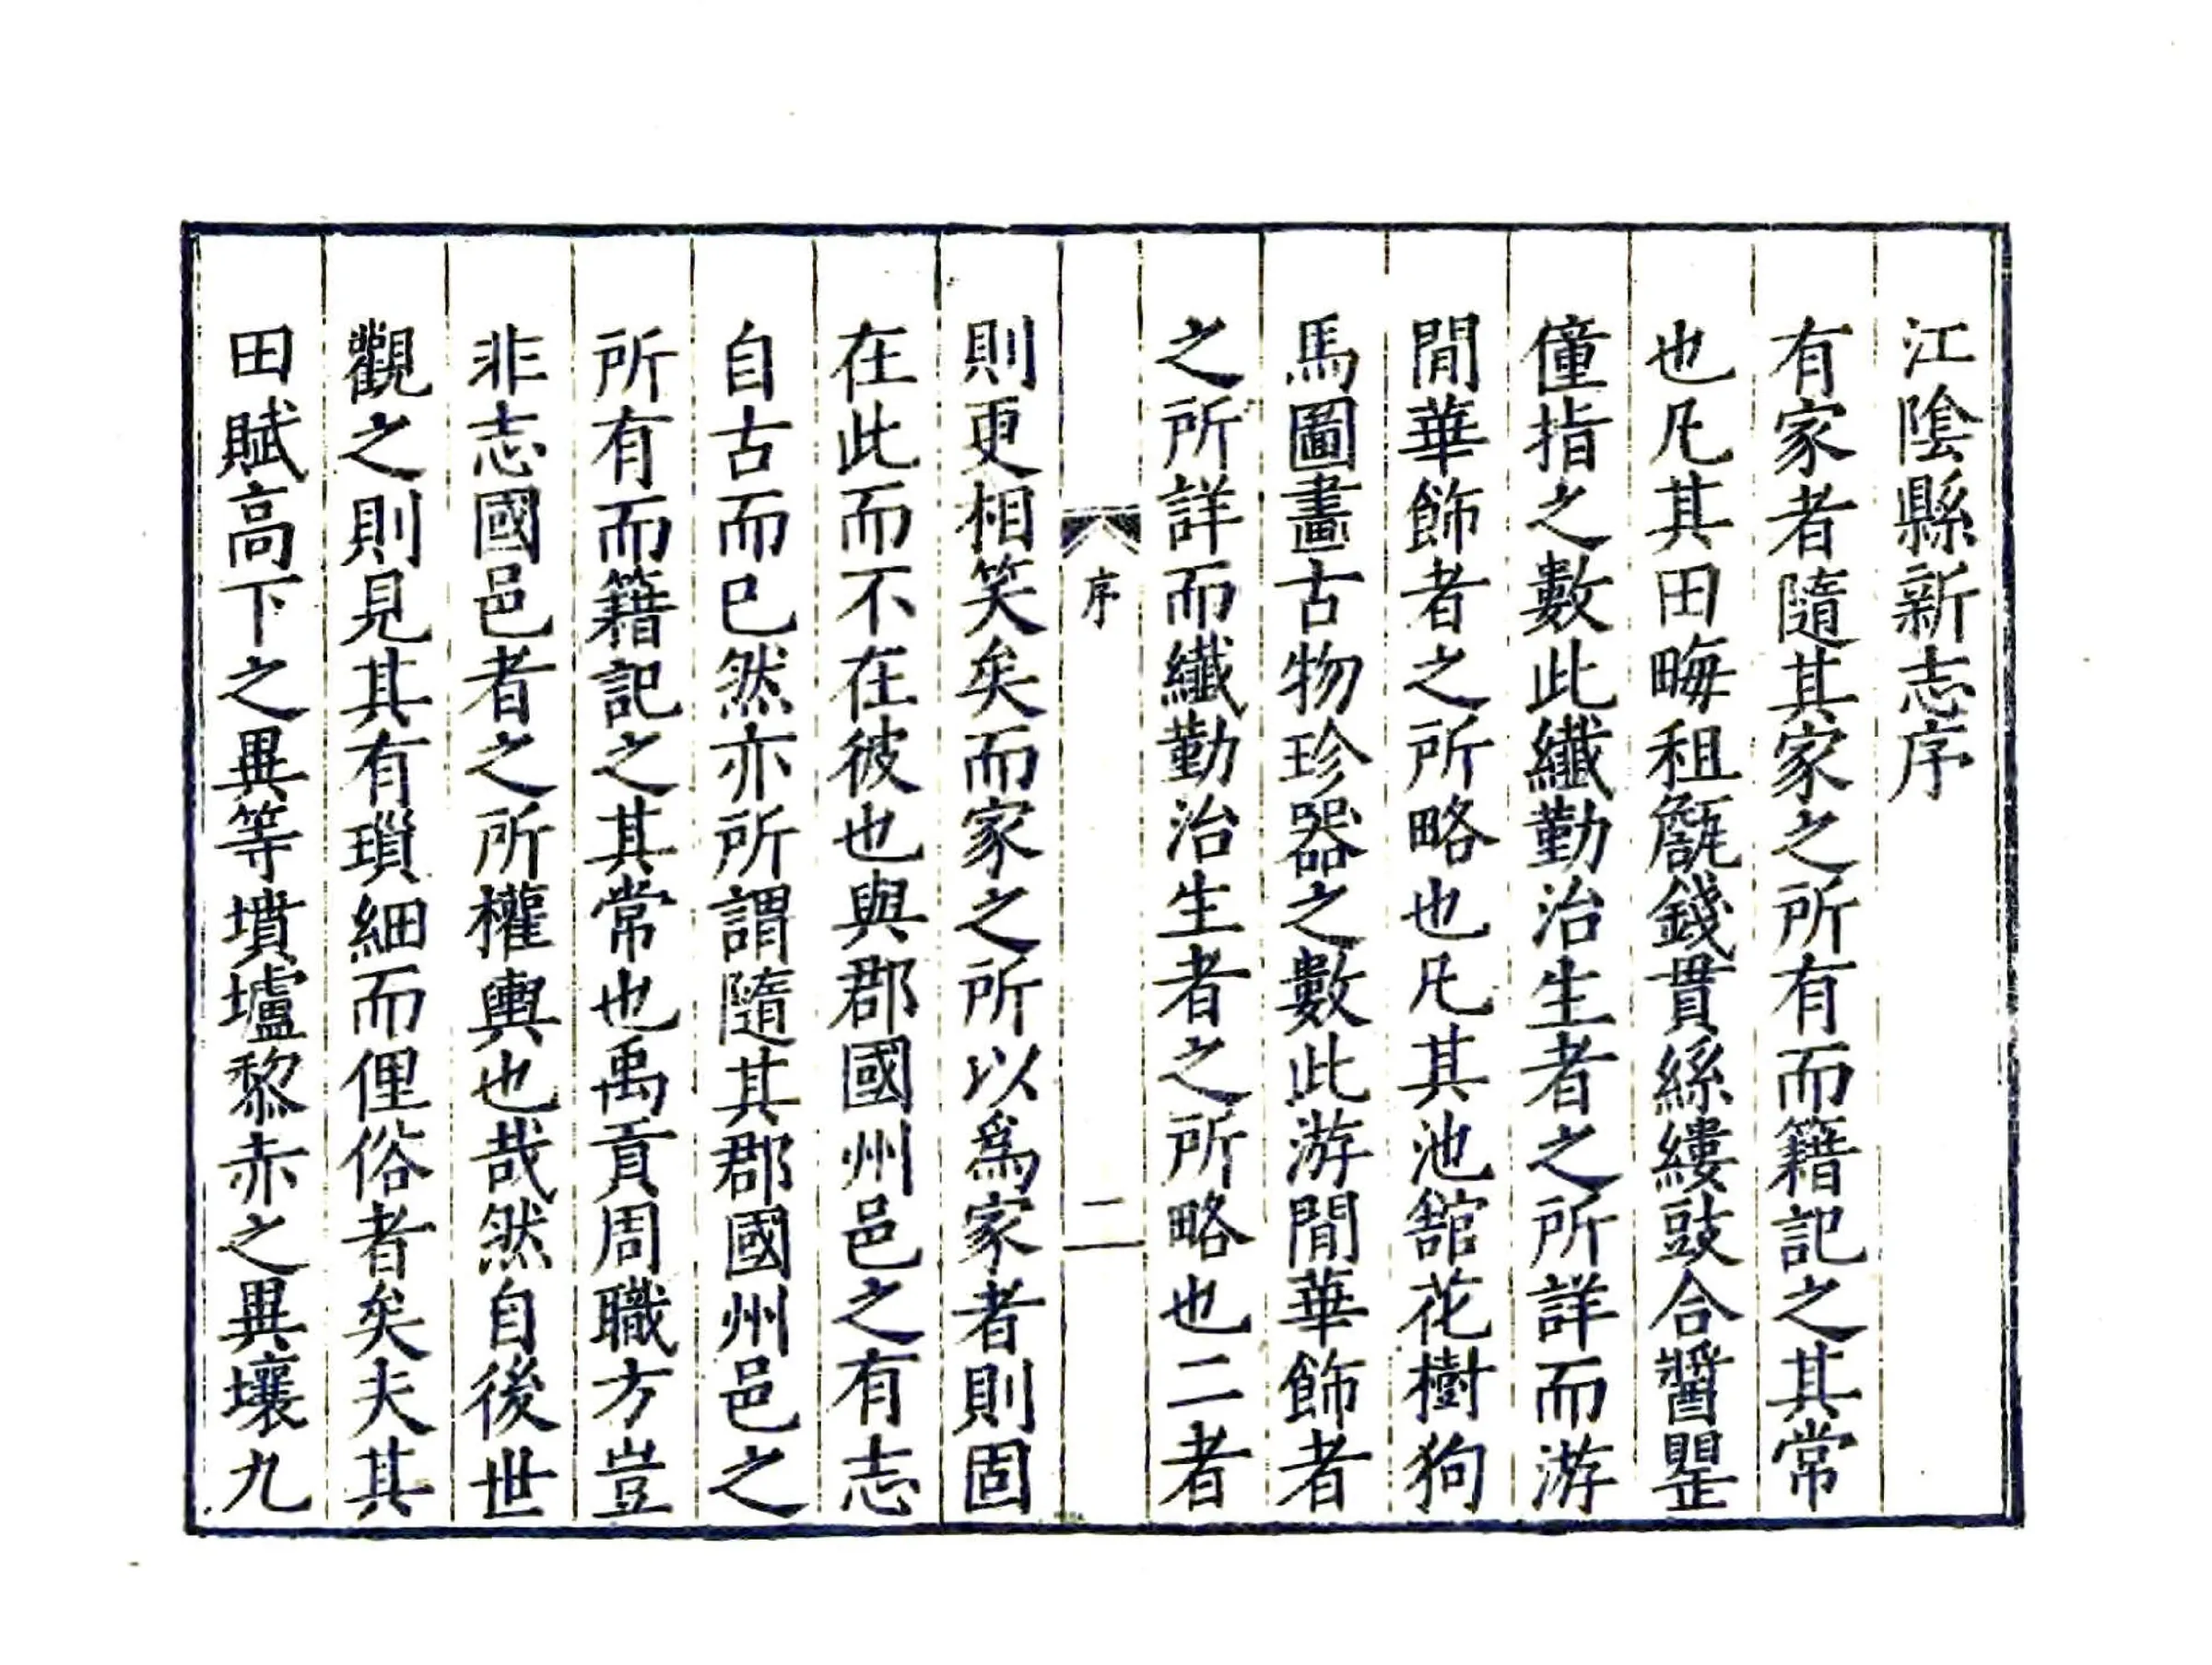 江陰縣新志序
有家者隨其家之所有而籍記之其常
也凡其田畮租甔錢貫絲縷豉合醬瞿
僮指之數此纖勤治生者之所詳而游
閒華飾者之所略也凡其池舘花樹狗
馬圖畫古物珍器之數此游閒華飾者
之所詳而纖勤治生者之所略也二者
序
二
則更相笑矣而家之所以爲家者則固
在此而不在彼也與郡國州邑之有志
自古而已然亦所謂隨其郡國州邑之
所有而籍記之其常也禹貢周職方豈
非志國邑者之所權輿也哉然自後世
觀之則見其有瑣細而俚俗者矣夫其
田賦高下之異等墳壚黎赤之異壤九